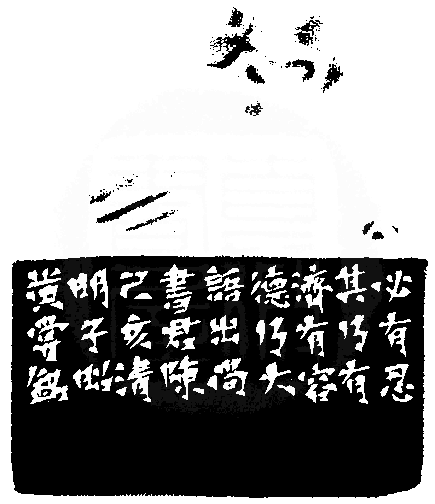 必有忍
其乃有
濟有容
德乃大
語出尚
書君陳
己亥清
明子